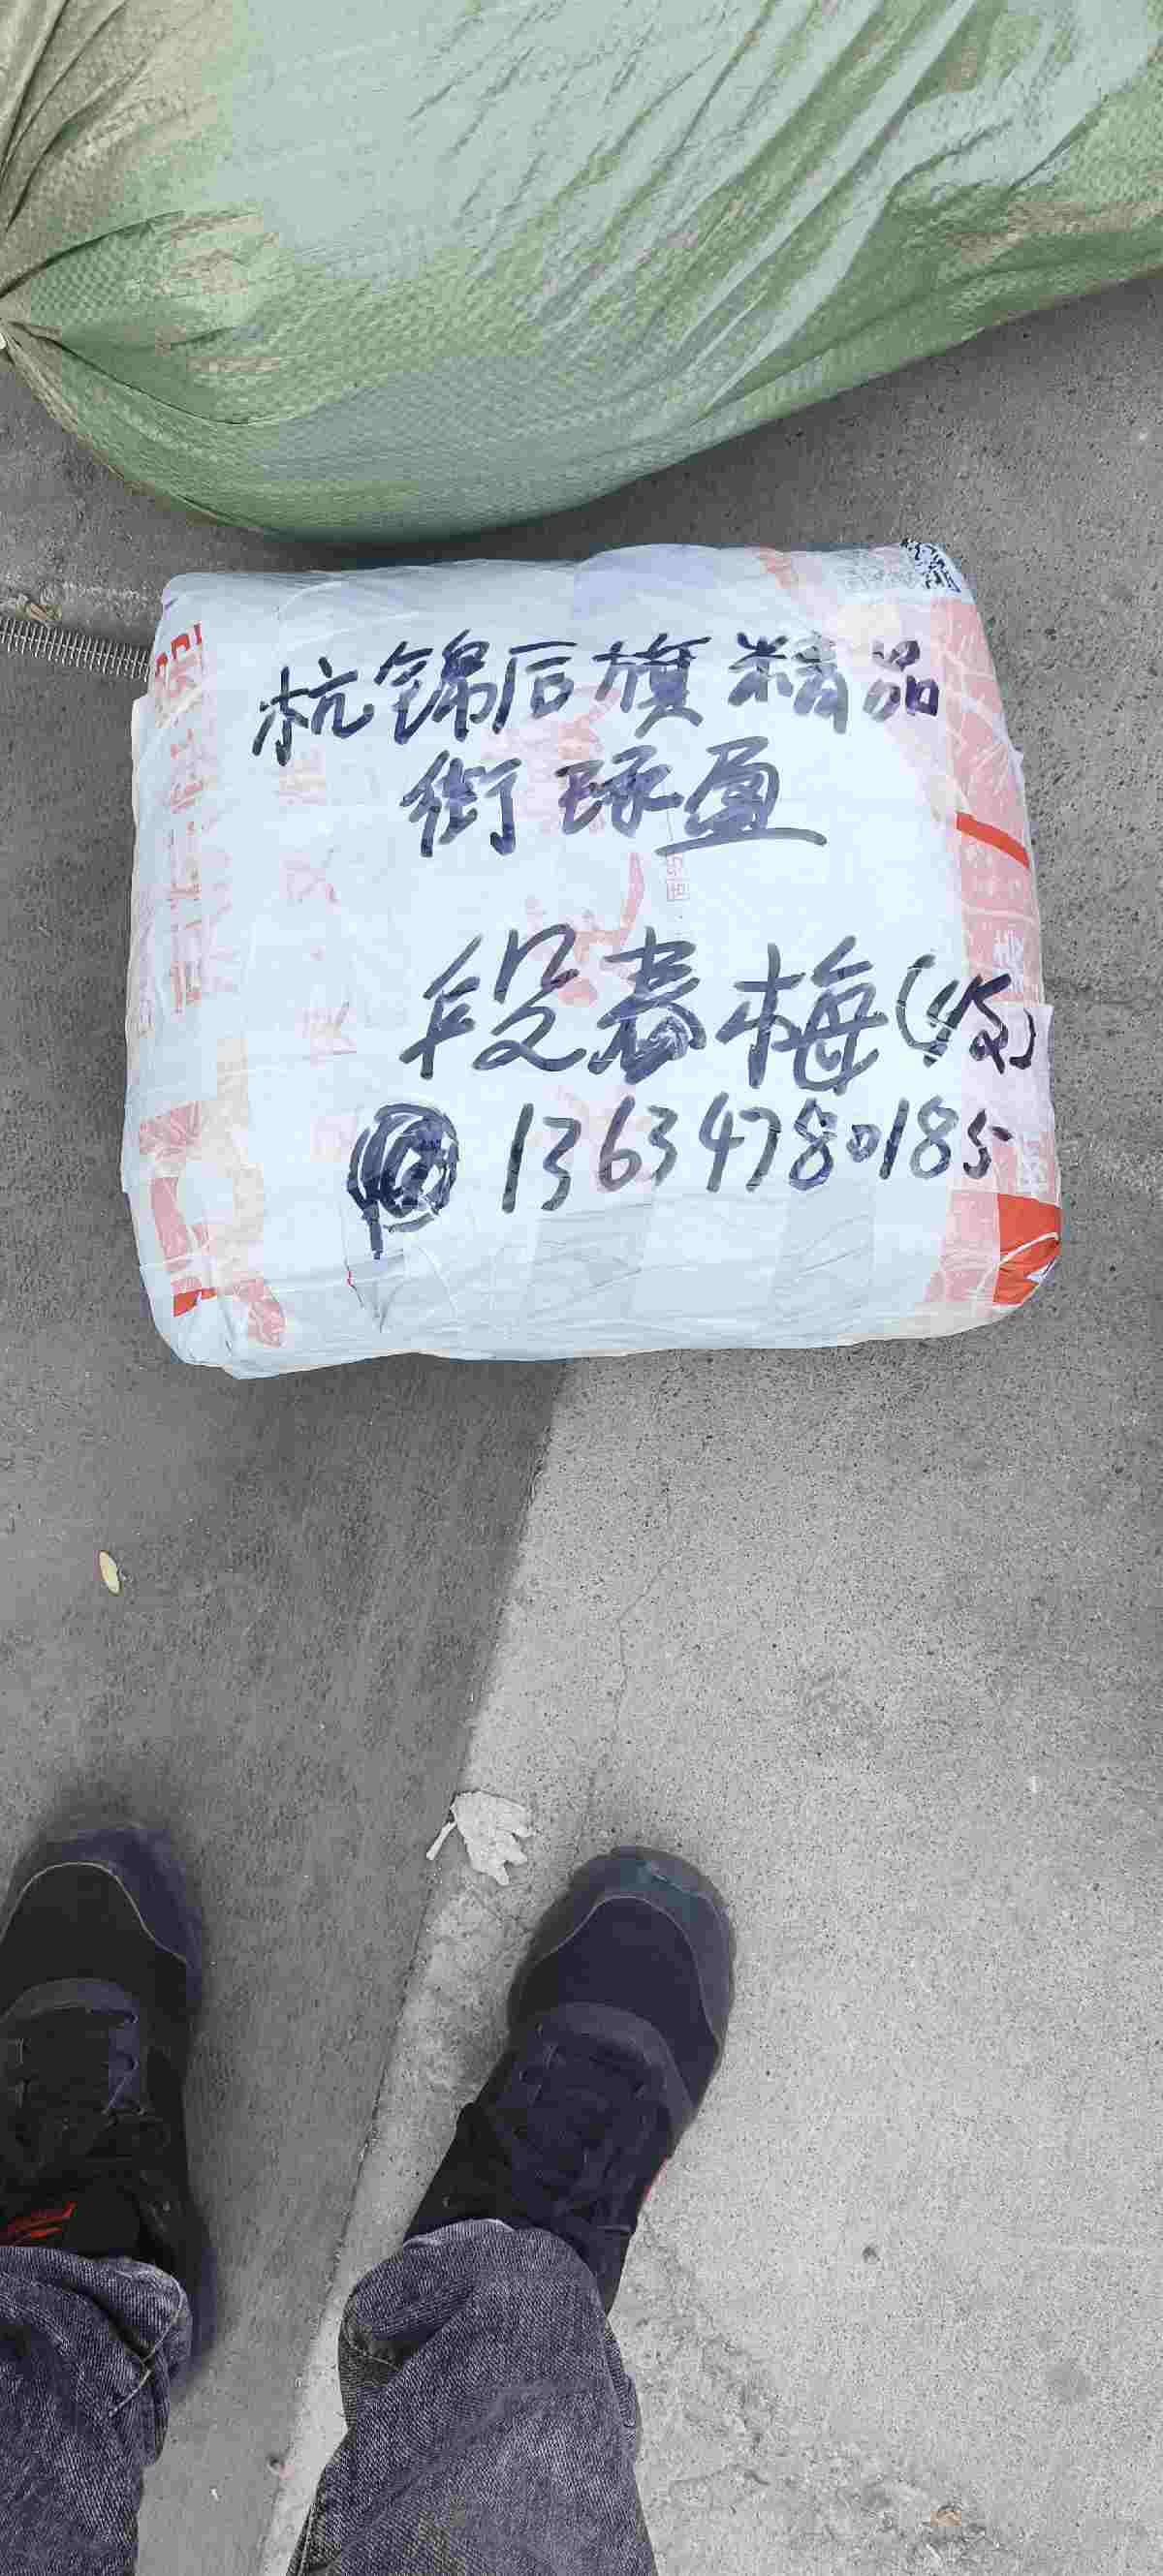 杭锦后旗精品
街琢盈
段春梅(收)
13634780185